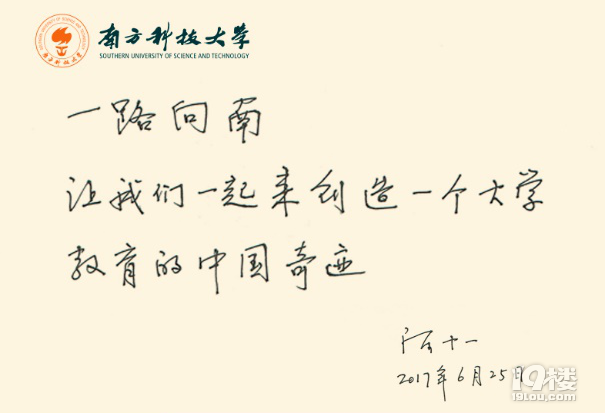 南方科技大学
SOUTHERN UNIVERSITY OF SCIENCE AND TECHNOLOGY
一路向南
让我们一起来创造一个大学
教育的中国奇迹
陈十一
2017年6月25日
19楼
19lou.com